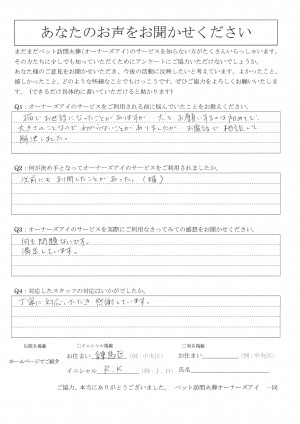 あなたのお声をお聞かせください
まだまだペット訪問火葬(オーナーズアイ)のサービスを知らない方がたくさんいらっしゃいます。
その方たちに少しでも知っていただくためにアンケートにご協力いただけないでしょうか。
あなた様のご意見をお聞かせいただき、今後の活動に反映したいと考えています。よかったこと、
嬉しかったこと、どのような些細なことでもけっこうです。ぜひご協力をよろしくお願いいたしま
す。(できるだけ具体的に書いていただけると助かります)
Q1:オーナーズアイのサービスをご利用される前に悩んでいたことをお教えください。
猫でお世話になったことがありますが 犬でお願いするのは初めてで、
大きさのことなどでわからないことがありましたが、お電話で相談して
解決しました。
Q2:何が決め手となってオーナーズアイのサービスをご利用されましたか。
以前にも利用したことがあった。(猫)
Q3:オーナーズアイのサービスを実際にご利用なさってみての感想をお聞かせください。
何も問題ないです。
満足しています。
Q4:対応したスタッフの対応はいかがでしたか。
丁寧に対応いただき、感謝しています。
ホームページでご紹介
イニシャル掲載
□匿名掲載
お住まい 練馬区 (例:中央区)
お住まい (例:中央区)
イニシャル R.K (例:J.H)
氏名
ご協力、本当にありがとうございました。 ペット訪問火葬オーナーズアイ 一同